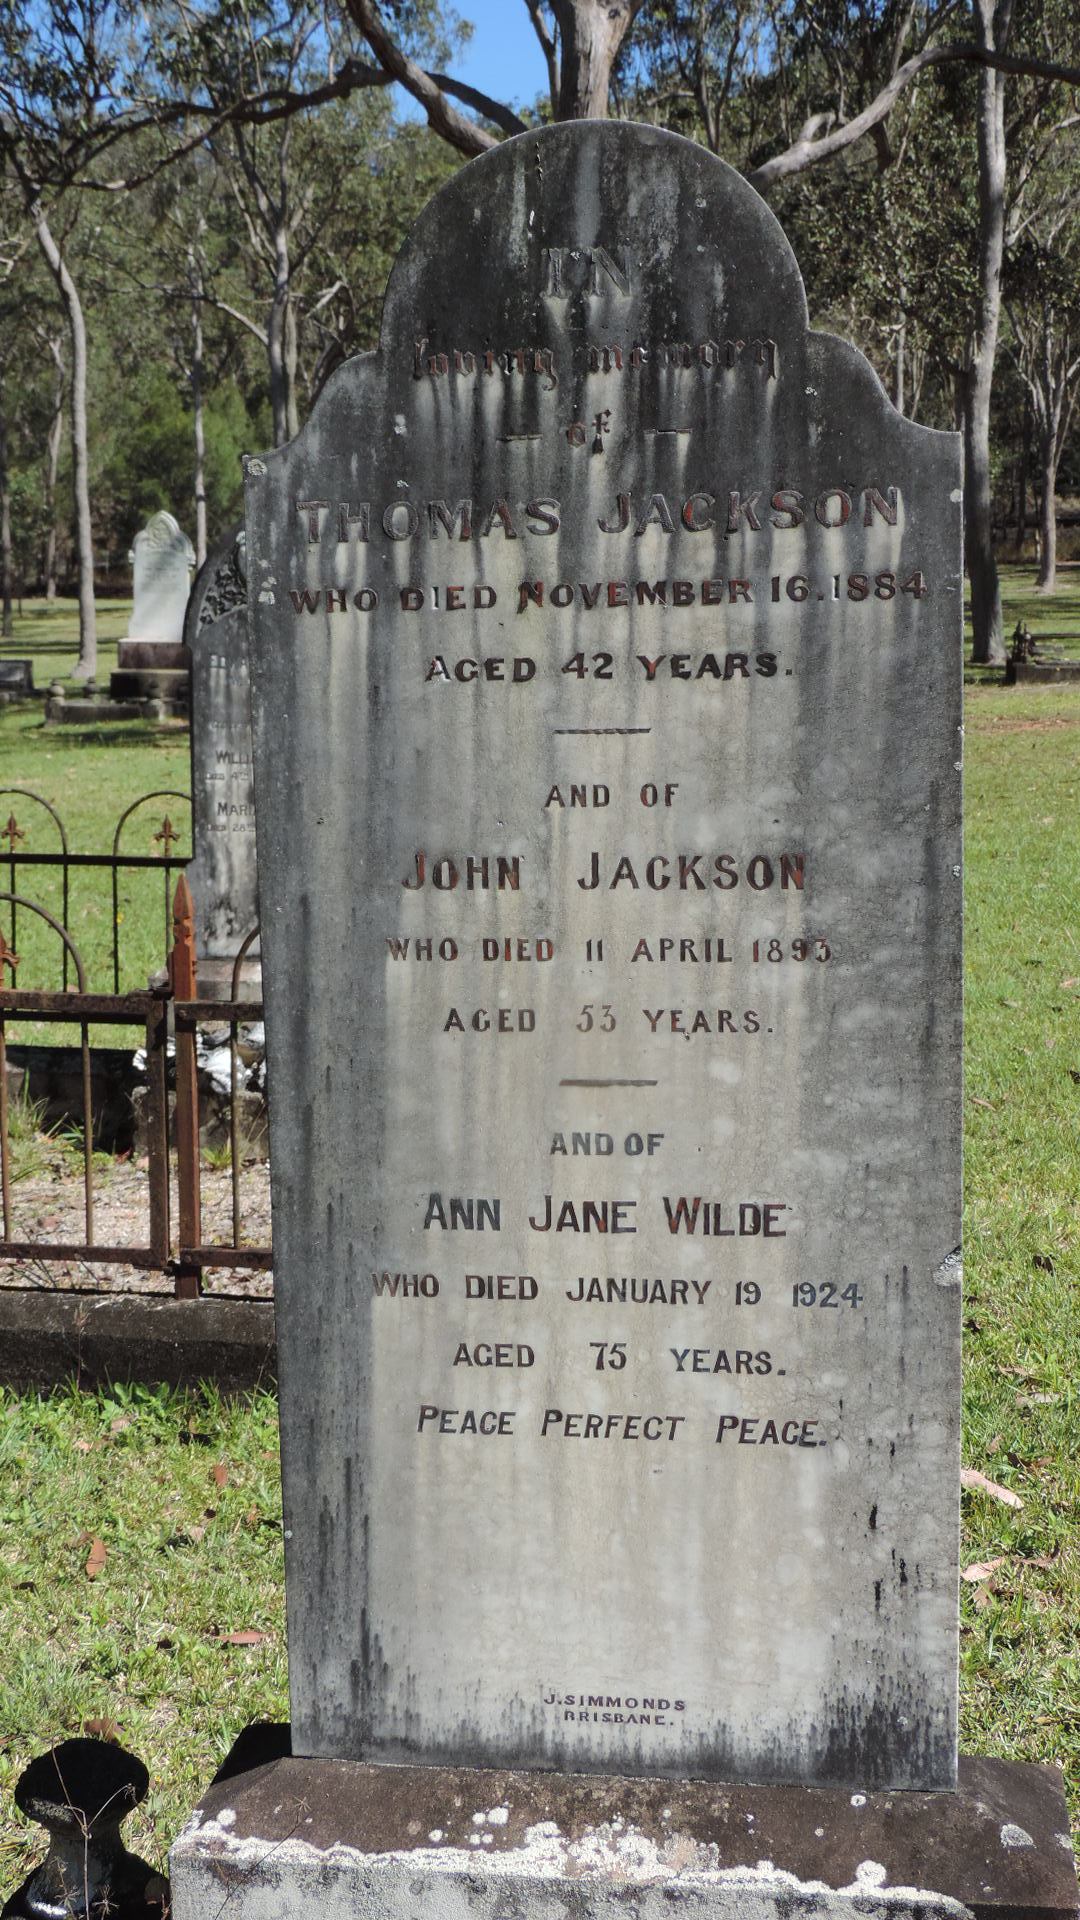 IN
loving memory
of
THOMAS JACKSON
WHO DIED NOVEMBER 16.1884
AGED 42 YEARS.
AND OF
JOHN JACKSON
WHO DIED 11 APRIL 1893
AGED 53 YEARS.
AND OF
ANN JANE WILDE
WHO DIED JANUARY 19 1924
AGED 75 YEARS.
PEACE PERFECT PEACE.
J.SIMMONDS
BRISBANE.